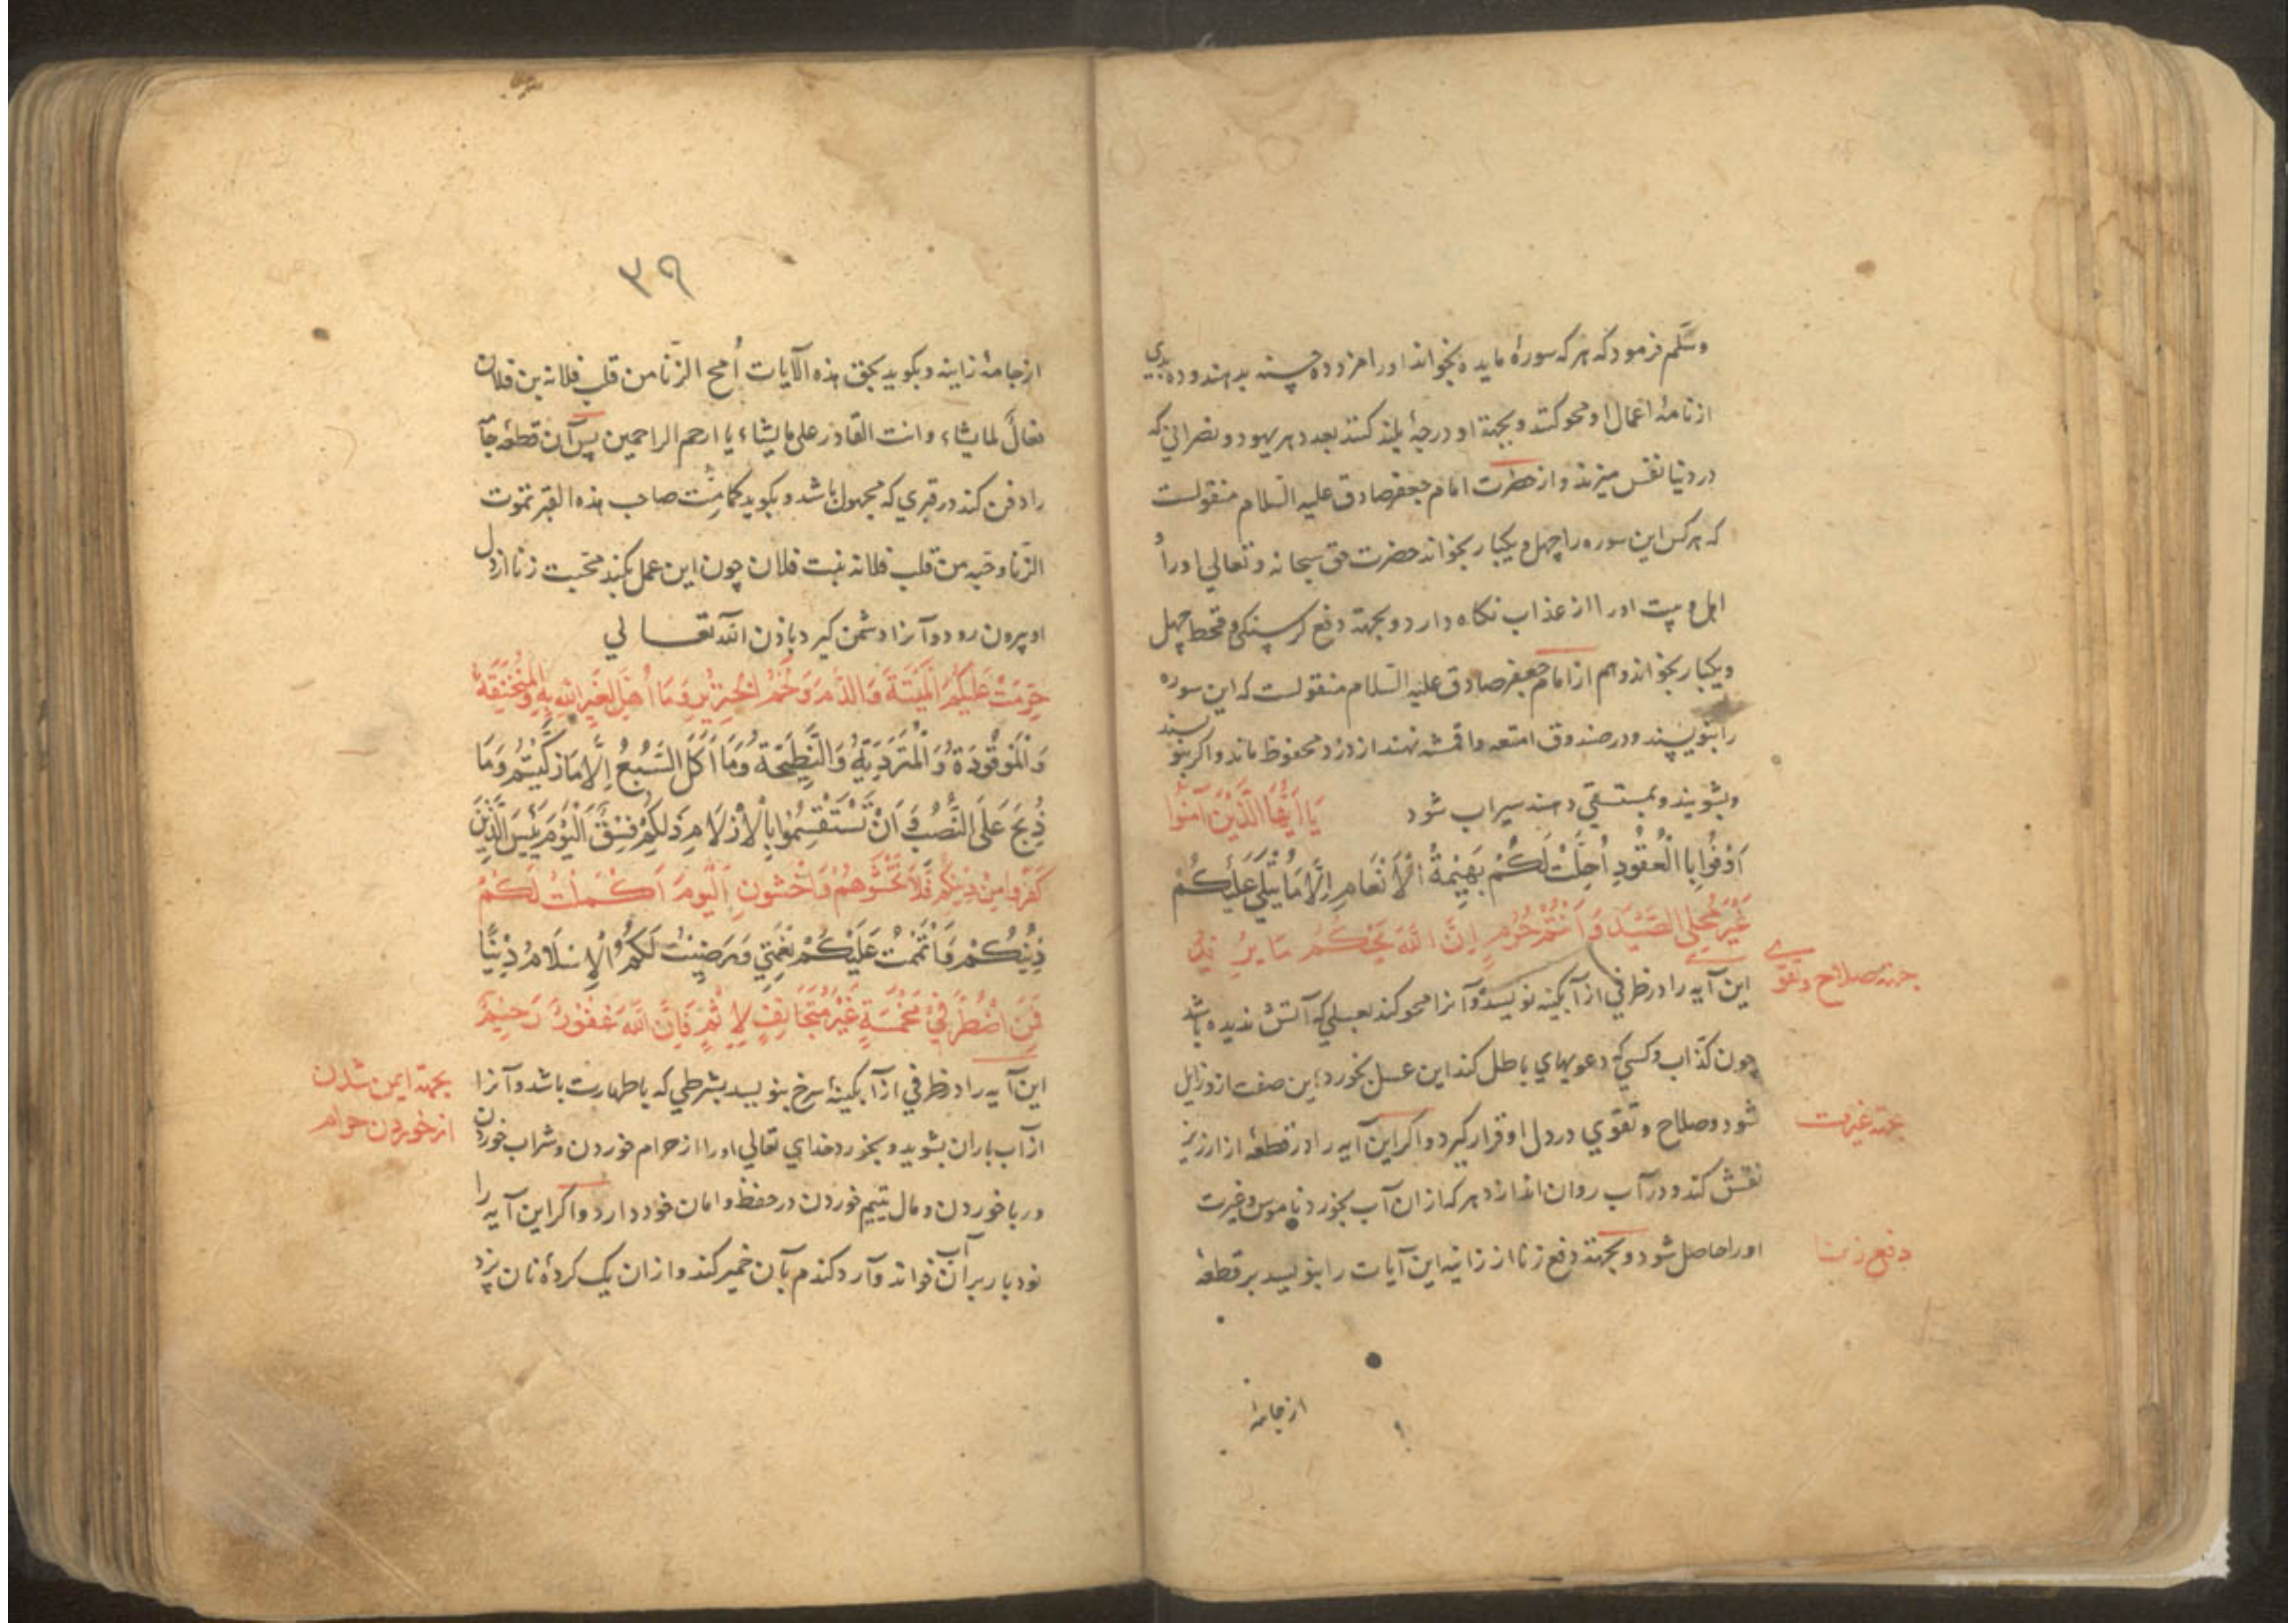 وسلم فرمود که هر که سورهٔ مایده بخواند اورا مزد ده حسنه بدهند و ده بدی
از نامهٔ اعمال او محو کنند و بجهة او درجهٔ بلند کنند بعدد هر یهود و نصرانی که
در دنیا نفس میزند و از حضرت امام جعفر صادق علیه السلام منقولست
که هر کس این سوره را چهل و یکبار بخواند حضرت حق سبحانه و تعالی اورا و
اهل بیت اورا از عذاب نکاه دارد و بجهة دفع کرسنکی و قحط چهل
و یکبار بخواند و هم از امام جعفر صادق علیه السلام منقولست که این سوره
را بنویسند و در صندوق امتعه و اقمشه نهند از دزد محفوظ ماند و اکر بنویسند
و بشویند و بمستسقی دهند سیراب شود يَا أَيُّهَا الَّذِينَ آمَنُوا
أَوْفُوا بِالْعُقُودِ أُحِلَّتْ لَكُمْ بَهِيمَةُ الْأَنْعَامِ إِلَّا مَا يُتْلَى عَلَيْكُمْ
غَيْرَ مُحِلِّي الصَّيْدِ وَأَنْتُمْ حُرُمٌ إِنَّ اللَّهَ يَحْكُمُ مَا يُرِيدُ
جهة صلاح و تقوی
این آیه را در ظرفی از آبکینه نویسد و آنرا محو کند بعسلی که آتش ندیده باشد
چون کذاب و کسی که دعویهای باطل کند این عسل بخورد این صفت ازو زایل
شود و صلاح و تقوی در دل او قرار کیرد و اکر این آیه را در قطعهٔ از ارزیز
جهة غیرت
نقش کند و در آب روان اندازد هر که ازان آب بخورد ناموس و غیرت
اورا حاصل شود و بجهة دفع زنا از زانیه این آیات را بنویسد بر قطعهٔ
دفع زنا
از جامهٔ
٣٩
از جامهٔ زانیه و بکوید بحق هذه الآیات أمح الزنا من قلب فلانه بن فلان
فعال لما یشاء و انت القادر علی ما یشاء یا ارحم الراحمین پس آن قطعه جامه
را دفن کند در قبری که مجهول باشد و بکوید کما مت صاحب هذه القبر تموت
الزنا و حبه من قلب فلانه بنت فلان چون این عمل بکند محبت زنا از دل
او بیرون رود و آنرا دشمن کیرد باذن الله تعالی
حُرِّمَتْ عَلَيْكُمُ الْمَيْتَةُ وَالدَّمُ وَلَحْمُ الْخِنْزِيرِ وَمَا أُهِلَّ لِغَيْرِ اللَّهِ بِهِ وَالْمُنْخَنِقَةُ
وَالْمَوْقُوذَةُ وَالْمُتَرَدِّيَةُ وَالنَّطِيحَةُ وَمَا أَكَلَ السَّبُعُ إِلَّا مَا ذَكَّيْتُمْ وَمَا
ذُبِحَ عَلَى النُّصُبِ وَأَنْ تَسْتَقْسِمُوا بِالْأَزْلَامِ ذَلِكُمْ فِسْقٌ الْيَوْمَ يَئِسَ الَّذِينَ
كَفَرُوا مِنْ دِينِكُمْ فَلَا تَخْشَوْهُمْ وَاخْشَونِ الْيَوْمَ أَكْمَلْتُ لَكُمْ
دِينَكُمْ وَأَتْمَمْتُ عَلَيْكُمْ نِعْمَتِي وَرَضِيتُ لَكُمُ الْإِسْلَامَ دِينًا
فَمَنِ اضْطُرَّ فِي مَخْمَصَةٍ غَيْرَ مُتَجَانِفٍ لِإِثْمٍ فَإِنَّ اللَّهَ غَفُورٌ رَحِيمٌ
این آیه را در ظرفی از آبکینهٔ سرخ بنویسد بشرطی که باطهارت باشد و آنرا
بجهة ایمن شدن
از خوردن حرام
از آب باران بشوید و بخورد خدای تعالی اورا از حرام خوردن و شراب خوردن
و ربا خوردن و مال یتیم خوردن در حفظ و امان خود دارد و اکر این آیه را
نود بار بر آن آب خواند و آرد کندم بآن خمیر کند و ازان یک کردهٔ نان پزد